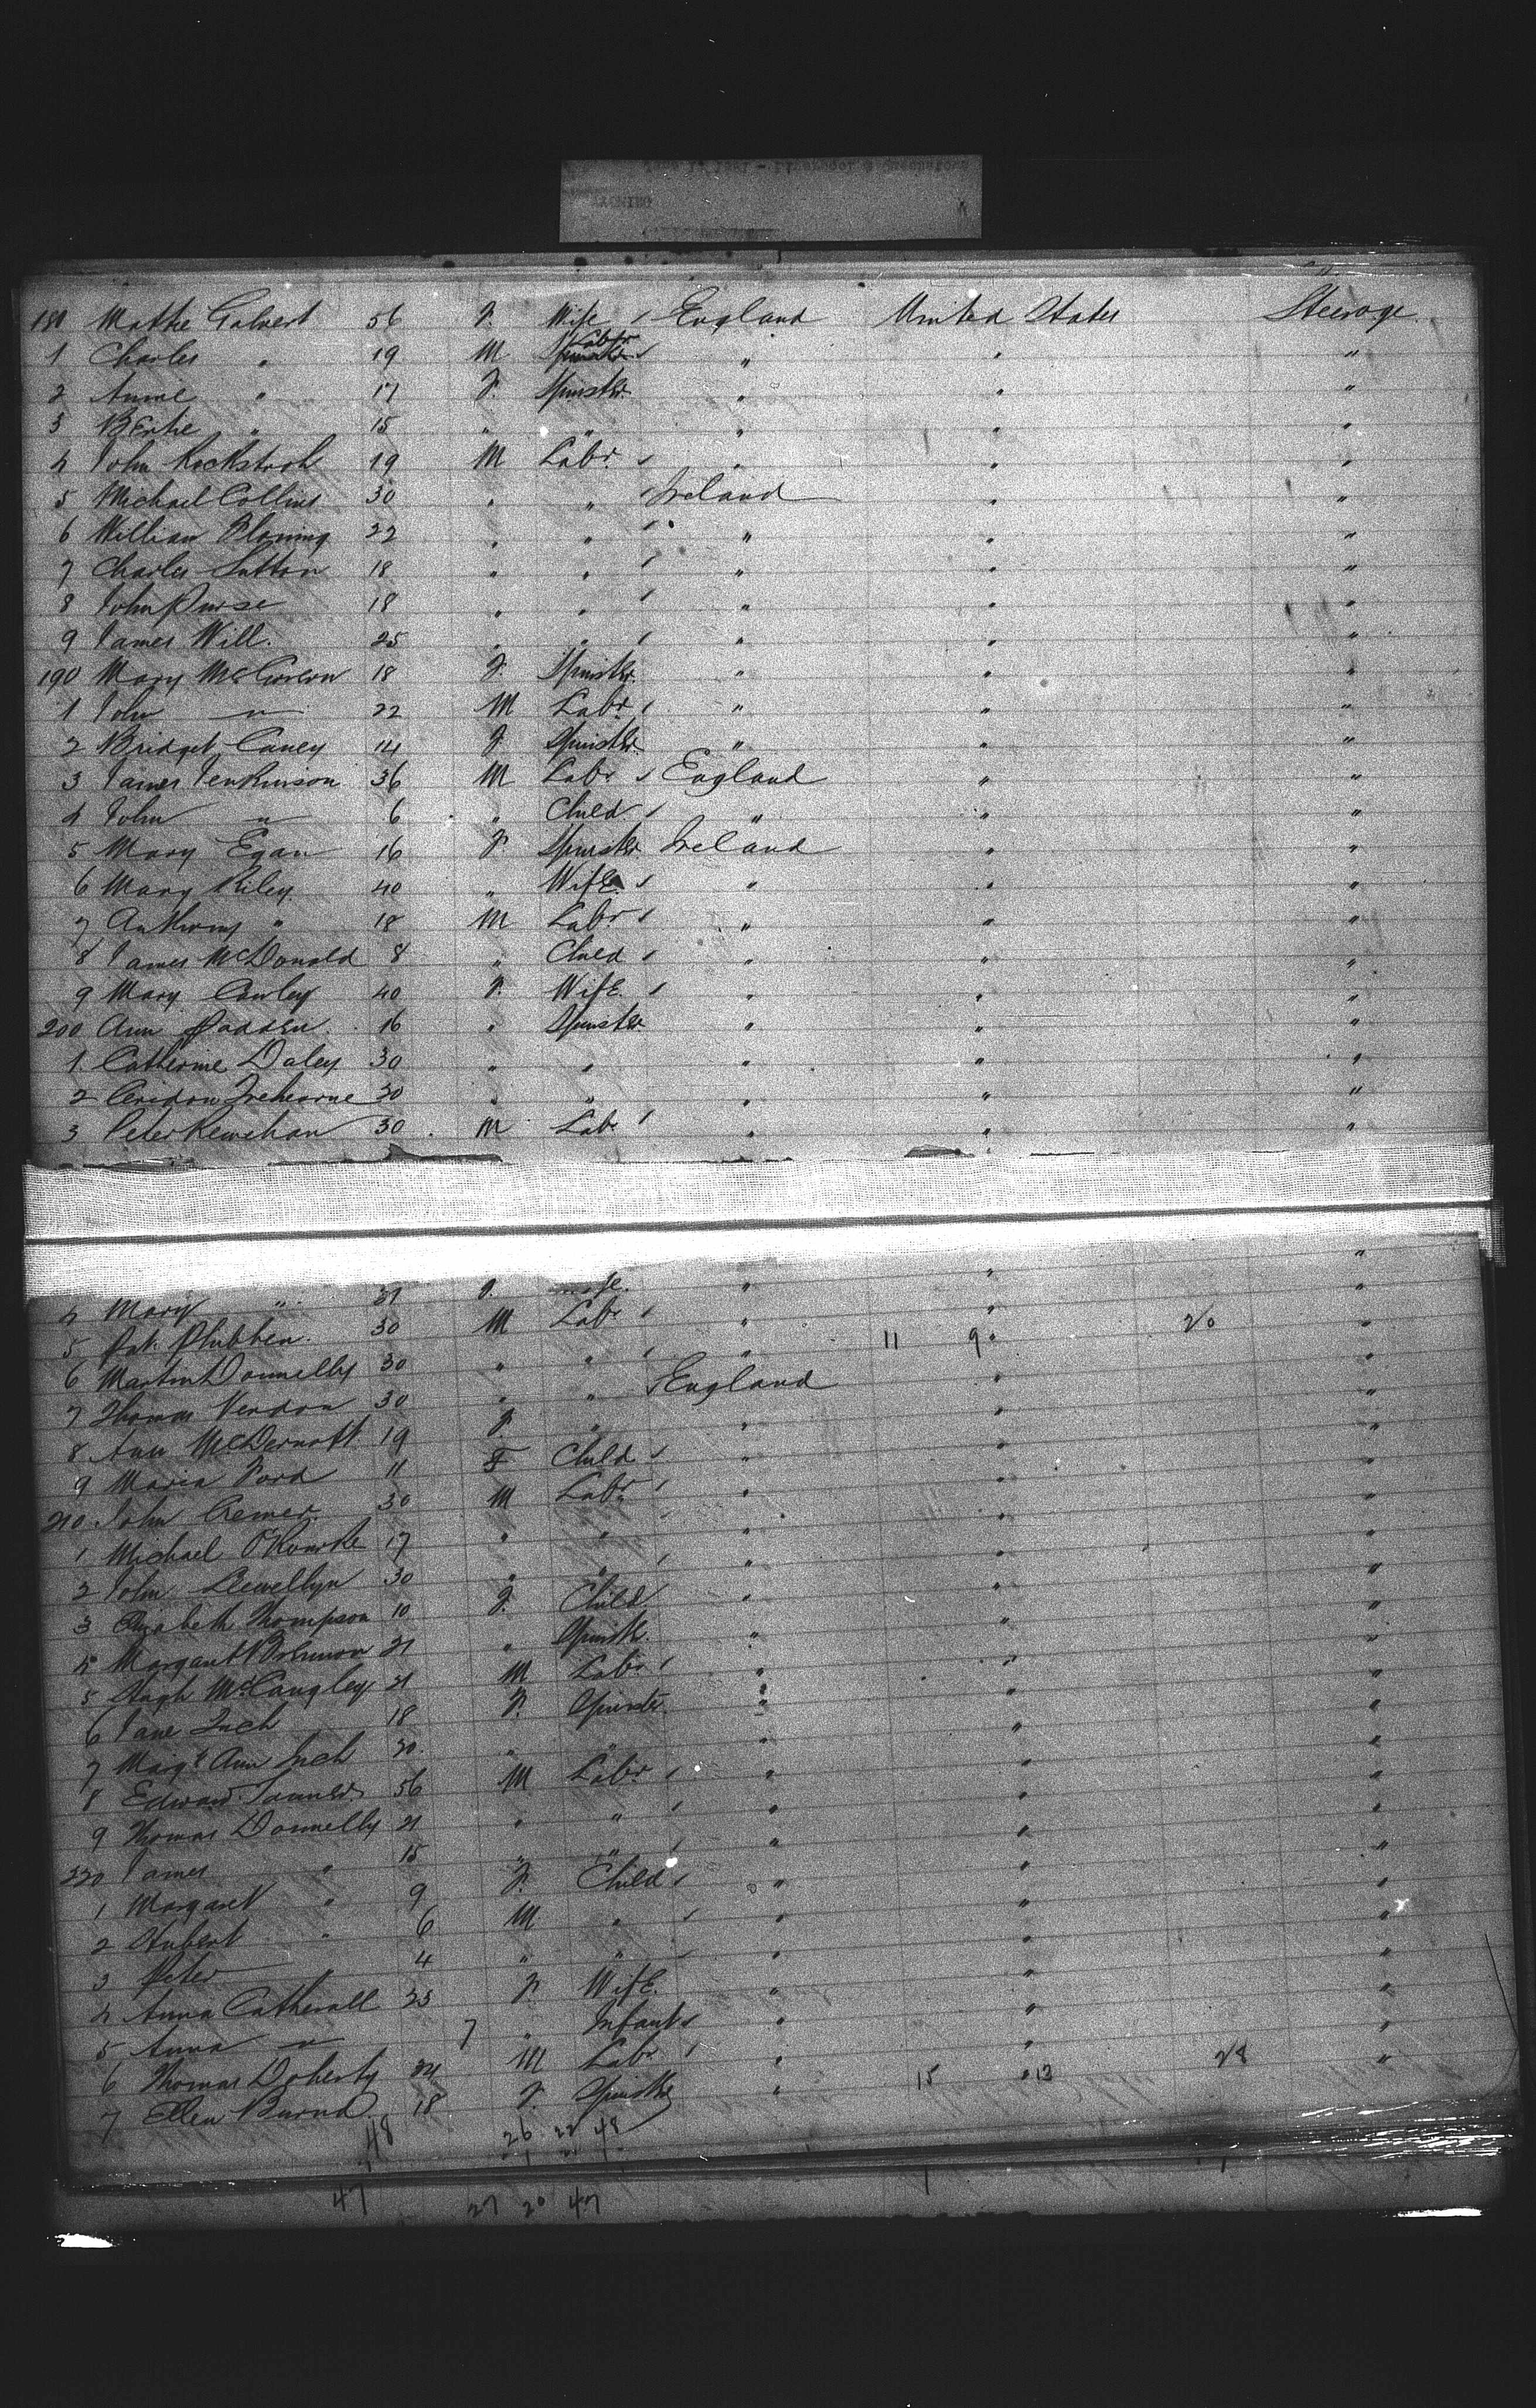 180 Mathe Galvert 56 F. Wife England United States Steerage
1 Charles " 19 M Labr " " "
2 Annie " 17 F. Spinster " " "
3 Bertie " 15 " " " " "
4 John Rockstroh 19 M Labr. " " "
5 Michael Collins 30 " " Ireland " "
6 William Fleming 22 " " " " "
7 Charles Sutton 18 " " " " "
8 John Purse 18 " " " " "
9 James Will. 25 " " " " "
190 Mary 18 F. Spinster. " " "
1 John " 22 M Labr. " " "
2 Bridget Caney 14 F Spinster. " " "
3 James Jenkinson 36 M Labr England " "
4 John " 6 " Child " " "
5 Mary Egan 16 F Spinster Ireland " "
6 Mary Riley 40 " Wife. " " "
7 Anthony " 18 M Labr " " "
8 James McDonald 8 " Child " " "
9 Mary Cawley 40 F. Wife. " " "
200 Ann Padden 16 " Spinster " " "
1 Catherine Daley 30 " " " " "
2 Trehearne 30 " " " " "
3 Peter 30 M Labr " " "
4 Mary " 31 F. " " "
5 Pat. 30 M Labr " " "
11 9 20
6 Martin Donnelly 30 " " " " "
7 Thomas Verdon 30 " " England " "
8 Ann McDermott 19 F " " " "
9 Maria Ford 11 F Child " " "
210 John Cremer. 30 M Labr " " "
1 Michael O'Rourke 17 " " " " "
2 John Llewellyn 30 " " " " "
3 Elizabeth Thompson 10 F. Child " " "
4 Margaret 21 " Spinstr. " " "
5 Hugh 21 M Labr " " "
6 Jane Inch 18 F. Spinstr. " " "
7 Margt Ann Inch 20. " " " " "
8 Edward Tanner. 56 M Labr " " "
9 Thomas Donnelly 21 " " " " "
220 James " 15 " " " " "
1 Margaret " 9 F. Child " " "
2 Hubert " 6 M " " " "
3 Peter " 4 " " " " "
4 Anna Catherall 23 F Wife. " " "
5 Anna " 7 " Infant " " "
6 Thomas Doherty 24 M Labr " " "
15 13 28
7 Ellen Burns 18 F. Spinster " " "
48 26 22 48
47 27 20 47